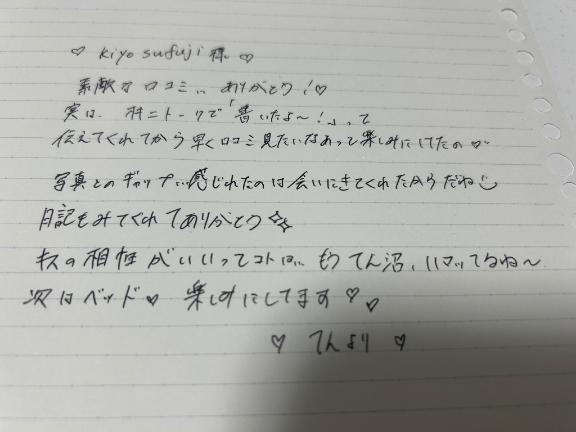 ♡ kiyosufuji様 ♡
素敵な口コミ、、ありがとう!♡
実は、オキニトークで「書いたよ〜!」って
伝えてくれてから早く口コミ見たいなあって楽しみにしてたの♡
写真とのギャップ、、感じれたのは会いにきてくれたからだね
日記もみてくれてありがとう
キスの相性がいいってコトは、、もうてん沼、ハマってるね〜
次はベッド♡ 楽しみにしてます♡♡
♡ てんより ♡